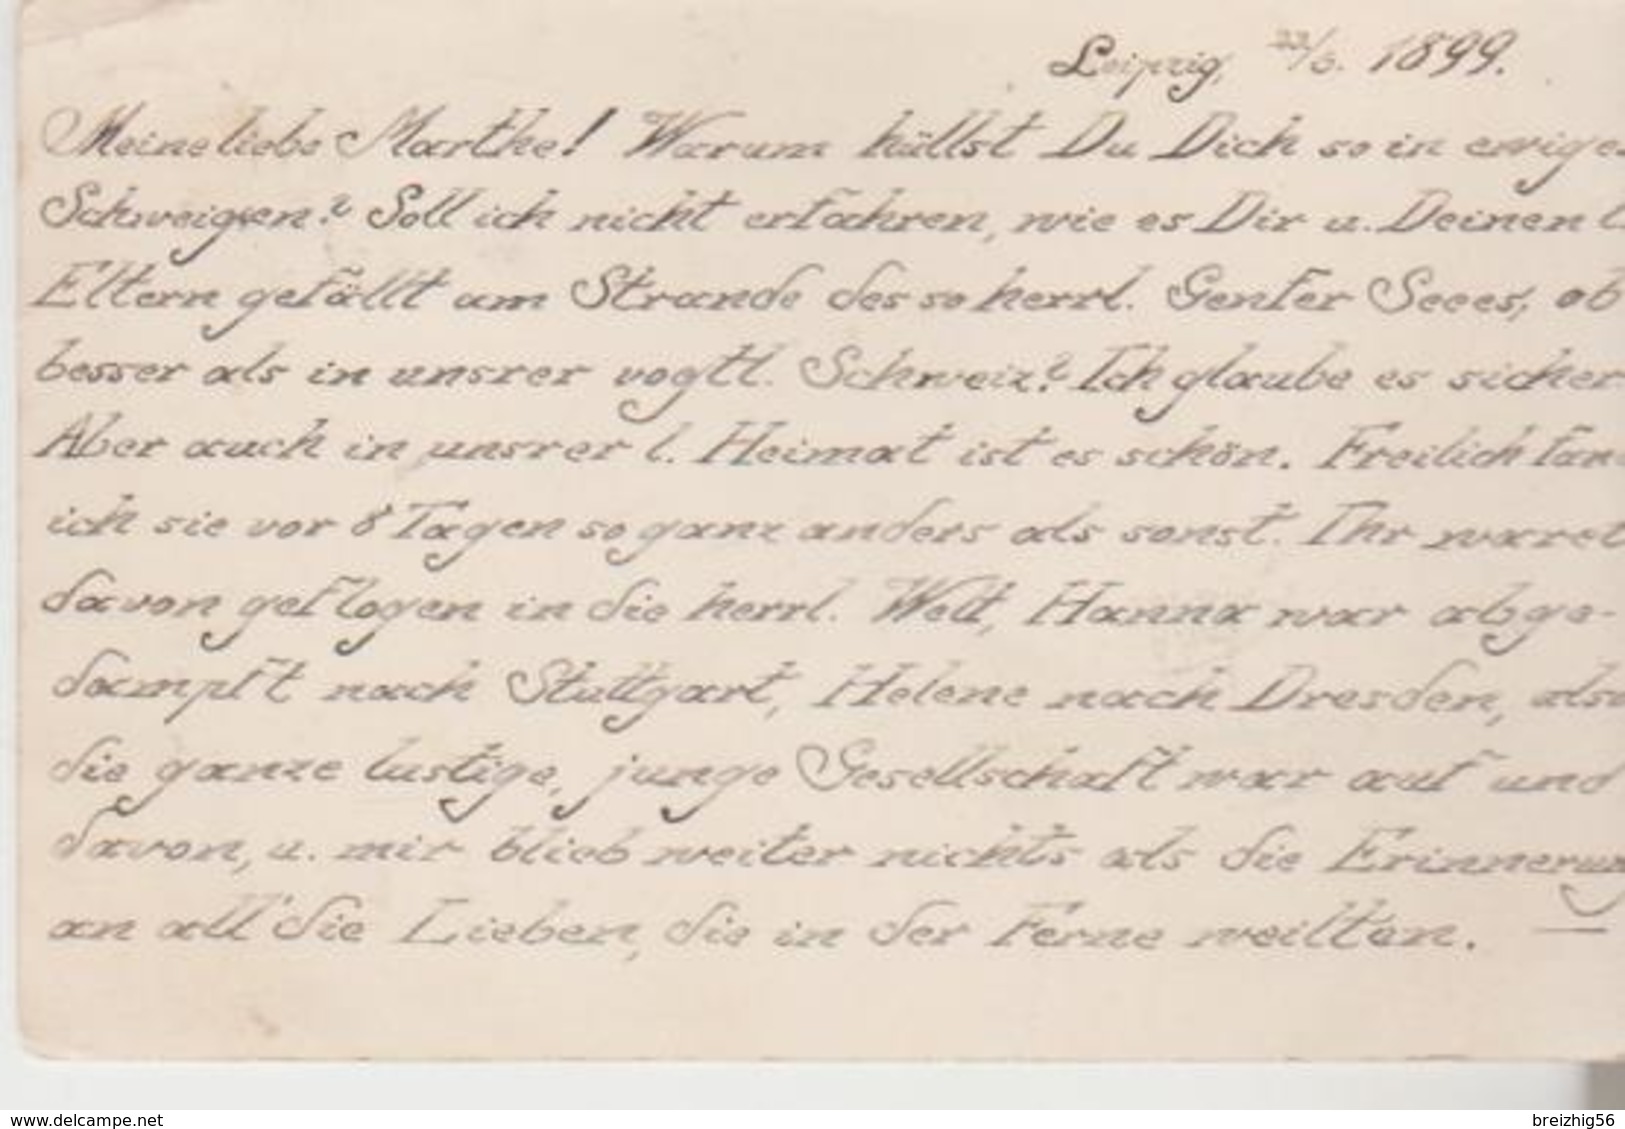 Leipzig, 22/6. 1899.
Meine liebe Marthe! Warum hüllst Du Dich so in ewiges
Schweigen? Soll ich nicht erfahren, wie es Dir u. Deinen l.
Eltern gefällt am Strande des so herrl. Genfer Seees, ob
besser als in unsrer vogtl. Schweiz? Ich glaube es sicher.
Aber auch in unsrer l. Heimat ist es schön. Freilich fan
ich sie vor 8 Tagen so ganz anders als sonst. Ihr waret
davon geflogen in die herrl. Welt, Hanna war abge-
dampft nach Stuttgart, Helene nach Dresden, also
die ganze lustige, junge Gesellschaft war auf und
davon, u. mir blieb weiter nichts als die Erinnerung
an all' die Lieben, die in der Ferne weilten. —
www.delcampe.net
breizhig56